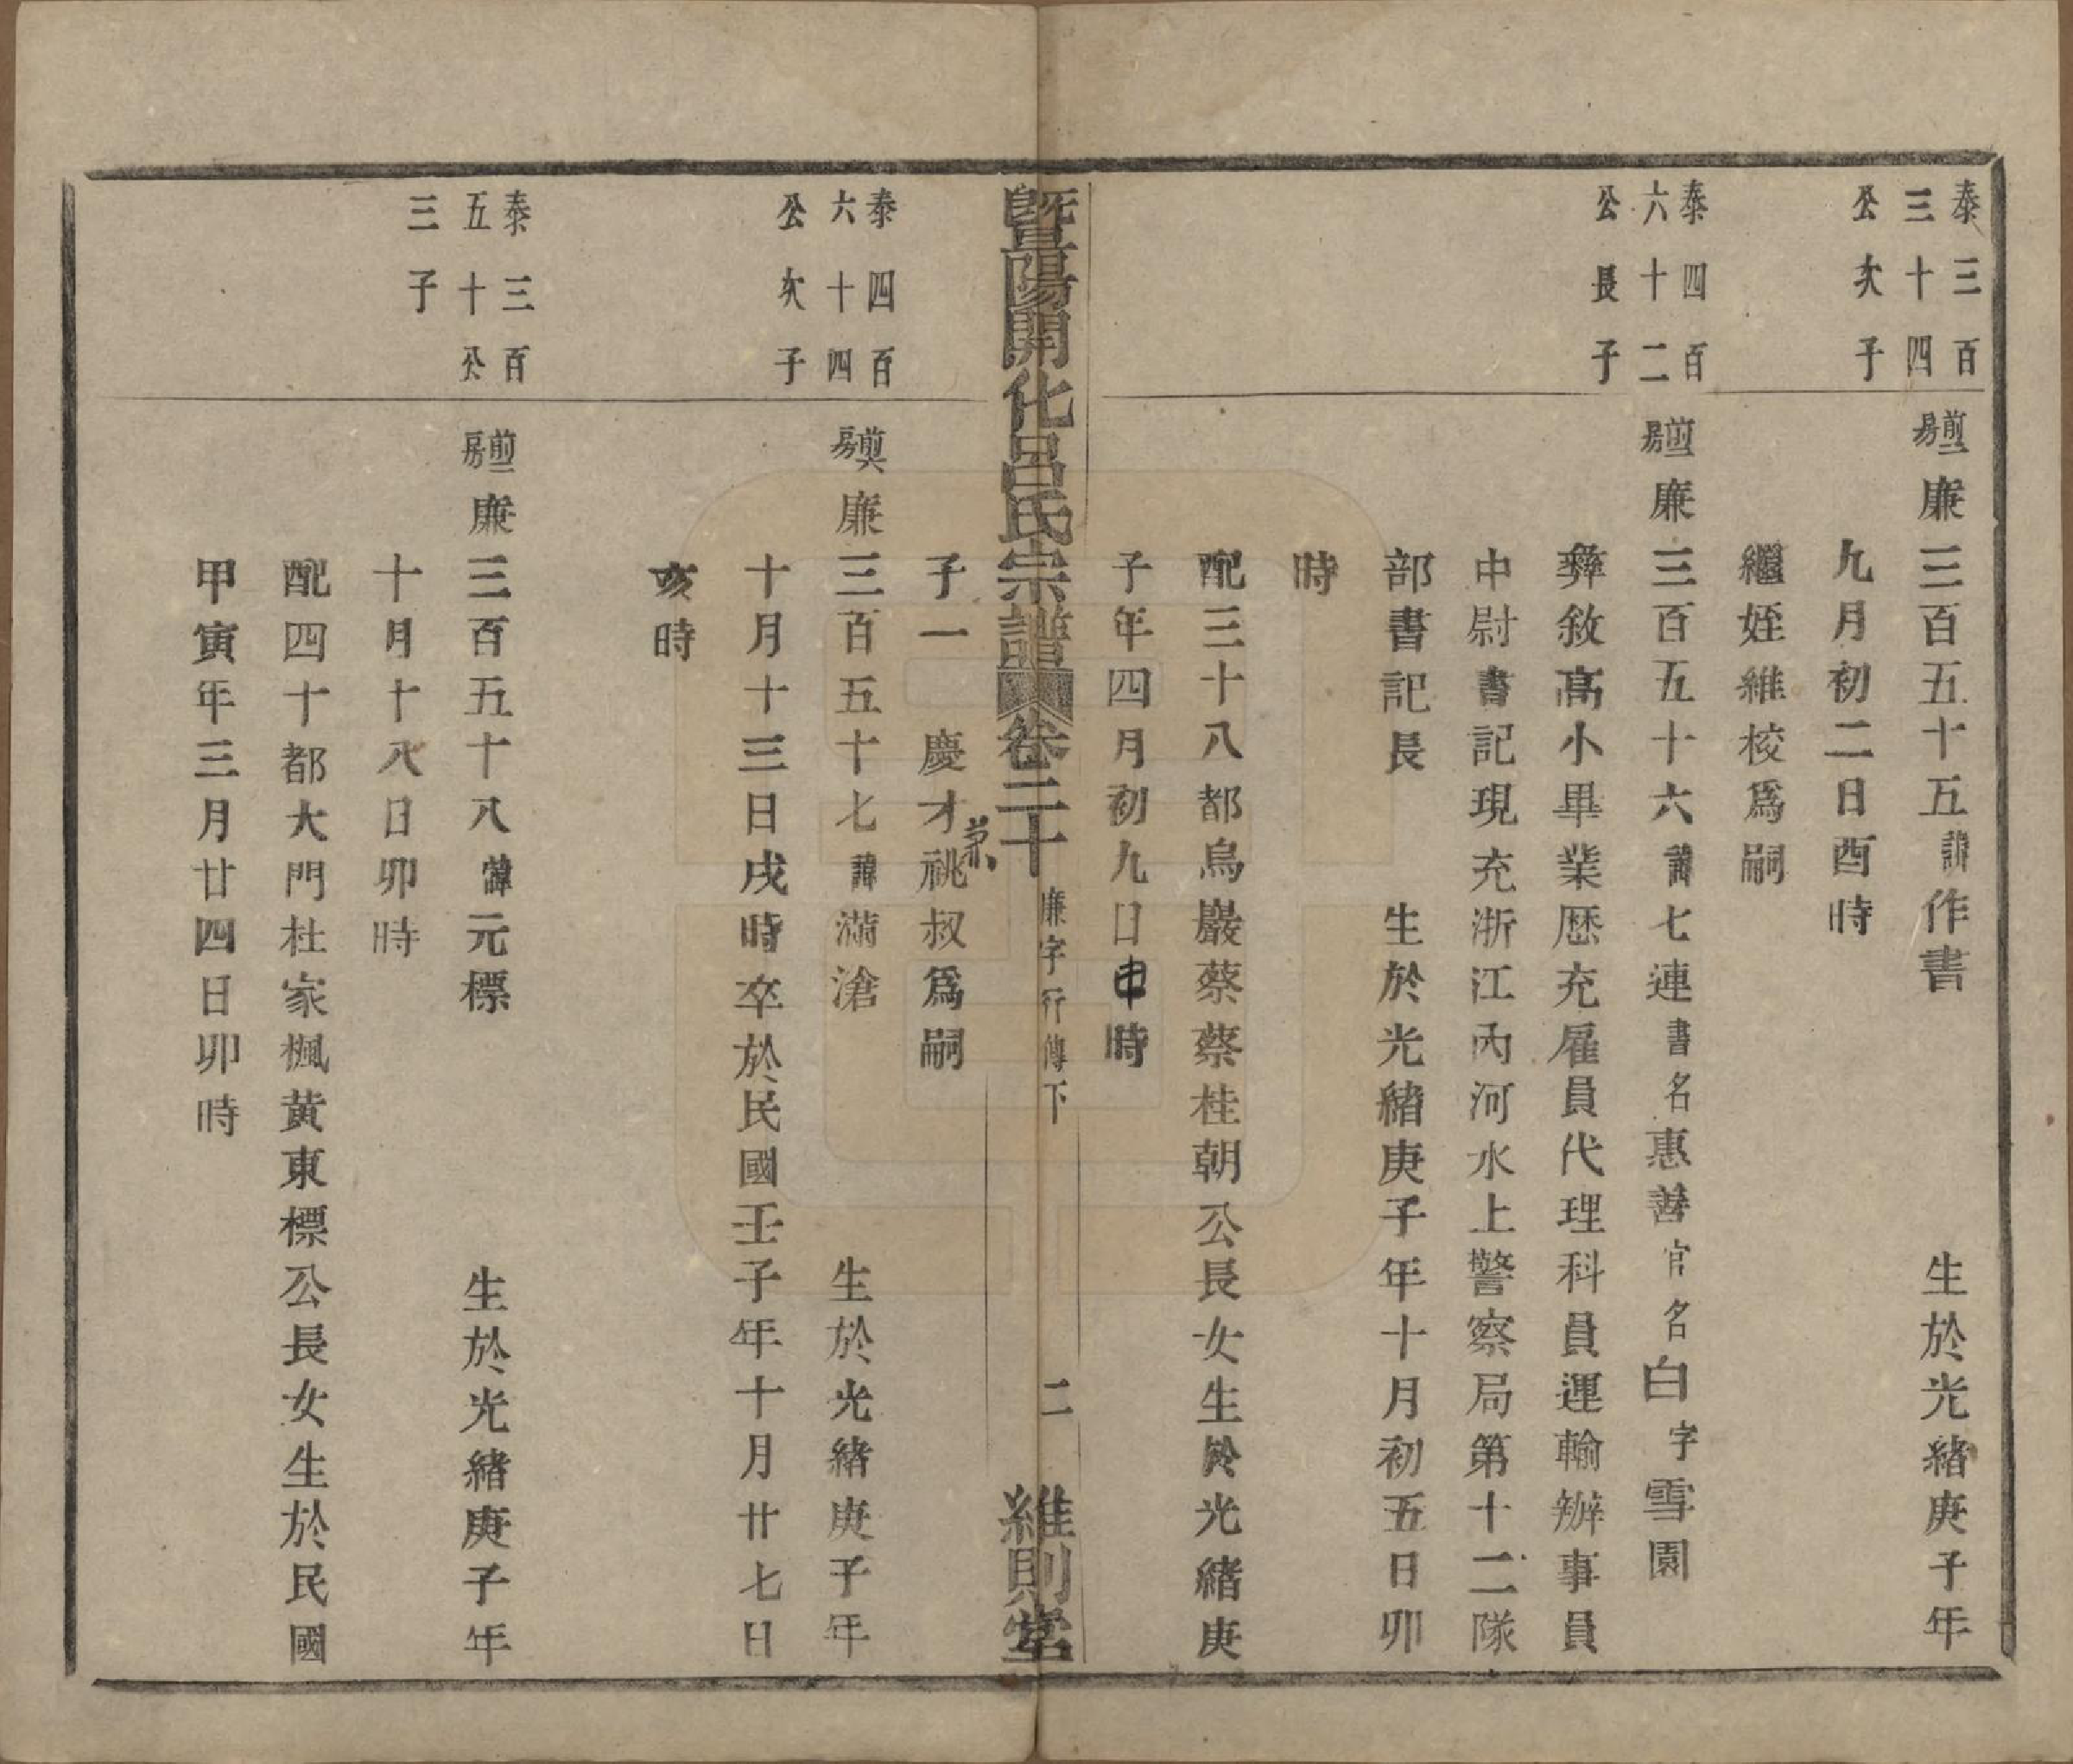 泰三百
三十四
公次子
煎一房廉三百五十五諱作書　生於光緒庚子年
九月初二日酉時
繼姪維校爲嗣
泰四百
六十二
公長子
煎一房廉三百五十六諱七連書名惠善官名白字雪園
彝敘高小畢業歷充雇員代理科員運輸辦事員
中尉書記現充浙江內河水上警察局第十二隊
部書記長　生於光緒庚子年十月初五日卯
時
配三十八都烏巖蔡蔡桂朝公長女生於光緒庚
子年四月初九日申時
子一　慶才兼祧叔爲嗣
暨陽開化呂氏宗譜卷二十　廉字行傳下　二　維則堂
泰四百
六十四
公次子
煎一房廉三百五十七諱滿滄　生於光緒庚子年
十月十三日戌時卒於民國壬子年十月廿七日
亥時
泰三百
五十公
三子
煎一房廉三百五十八諱元標　生於光緒庚子年
十月十八日卯時
配四十都大門杜家楓黃東標公長女生於民國
甲寅年三月廿四日卯時